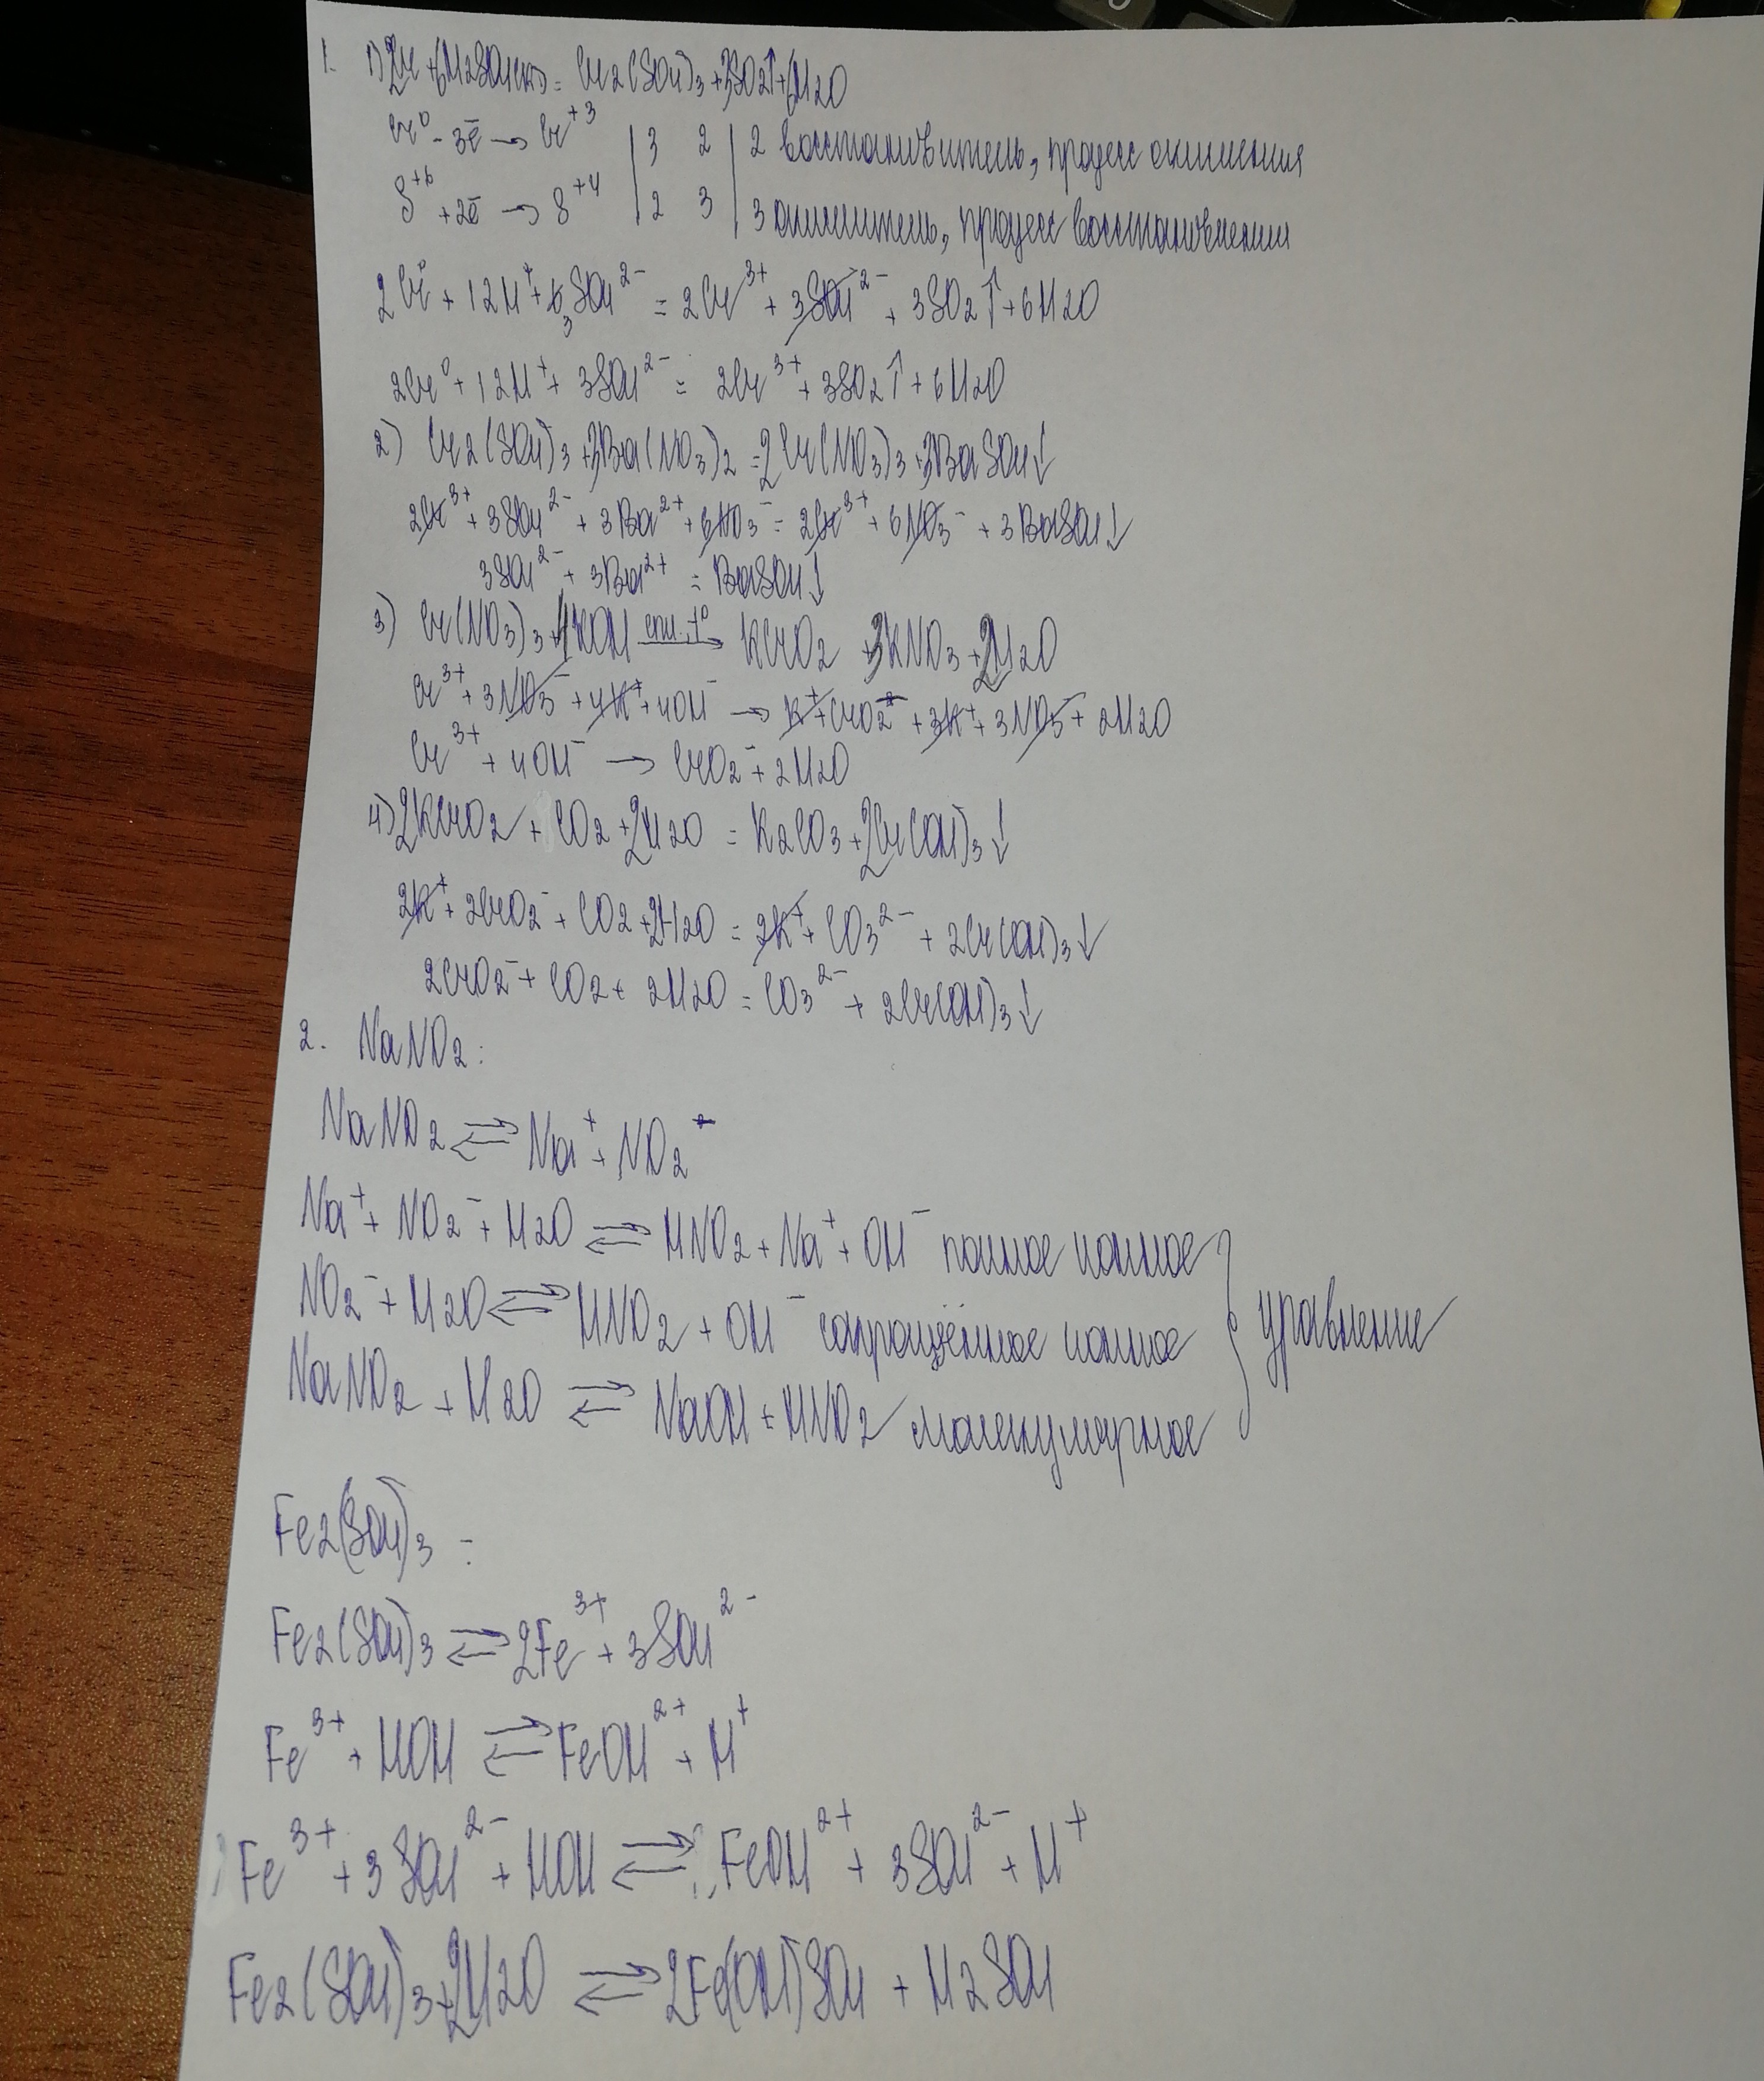 1. 1) 2Cr + 6H2SO4(к) = Cr2(SO4)3 + 3SO2↑ + 6H2O
Cr⁰ - 3ē → Cr⁺³ | 3 2 | 2 восстановитель, процесс окисления
S⁺⁶ + 2ē → S⁺⁴ | 2 3 | 3 окислитель, процесс восстановления
2Cr⁰ + 12H⁺ + 6 3SO4²⁻ = 2Cr³⁺ + 3SO4²⁻ + 3SO2↑ + 6H2O
2Cr⁰ + 12H⁺ + 3SO4²⁻ = 2Cr³⁺ + 3SO2↑ + 6H2O
2) Cr2(SO4)3 + 3Ba(NO3)2 = 2Cr(NO3)3 + 3BaSO4↓
2Cr³⁺ + 3SO4²⁻ + 3Ba²⁺ + 6NO3⁻ = 2Cr³⁺ + 6NO3⁻ + 3BaSO4↓
3SO4²⁻ + 3Ba²⁺ = BaSO4↓
3) Cr(NO3)3 + 4KOH спл., t⁰ → KCrO2 + 3KNO3 + 2H2O
Cr³⁺ + 3NO3⁻ + 4K⁺ + 4OH⁻ → K⁺ + CrO2⁻ + 3K⁺ + 3NO3⁻ + 2H2O
Cr³⁺ + 4OH⁻ → CrO2⁻ + 2H2O
4) 2KCrO2 + CO2 + 2H2O = K2CO3 + 2Cr(OH)3↓
2K⁺ + 2CrO2⁻ + CO2 + 2H2O = 2K⁺ + CO3²⁻ + 2Cr(OH)3↓
2CrO2⁻ + CO2 + 2H2O = CO3²⁻ + 2Cr(OH)3↓
2. NaNO2:
NaNO2 ⇄ Na⁺ + NO2⁻
Na⁺ + NO2⁻ + H2O ⇄ HNO2 + Na⁺ + OH⁻ полное ионное
NO2⁻ + H2O ⇄ HNO2 + OH⁻ сокращённое ионное } уравнение
NaNO2 + H2O ⇄ NaOH + HNO2 молекулярное
Fe2(SO4)3 :
Fe2(SO4)3 ⇄ 2Fe³⁺ + 3SO4²⁻
Fe³⁺ + HOH ⇄ FeOH²⁺ + H⁺
Fe³⁺ + 3SO4²⁻ + HOH ⇄ FeOH²⁺ + 3SO4²⁻ + H⁺
Fe2(SO4)3 + 2H2O ⇄ 2Fe(OH)SO4 + H2SO4